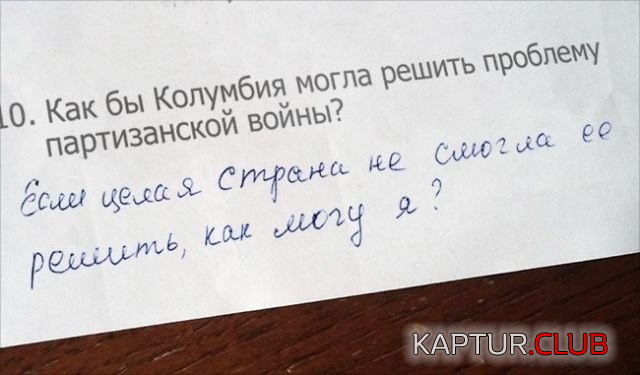 10. Как бы Колумбия могла решить проблему
партизанской войны?
Если целая страна не смогла ее
решить, как могу я?
KAPTUR.CLUB